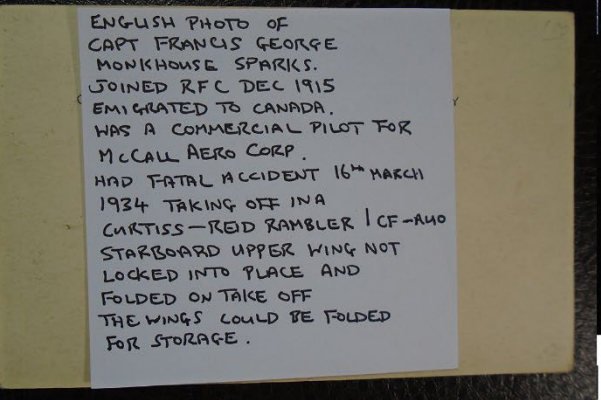 ENGLISH PHOTO OF
CAPT FRANCIS GEORGE
MONKHOUSE SPARKS.
JOINED RFC DEC 1915
EMIGRATED TO CANADA.
WAS A COMMERCIAL PILOT FOR
McCALL AERO CORP.
HAD FATAL ACCIDENT 16TH MARCH
1934 TAKING OFF IN A
CURTISS-REID RAMBLER | CF-AUO
STARBOARD UPPER WING NOT
LOCKED INTO PLACE AND
FOLDED ON TAKE OFF
THE WINGS COULD BE FOLDED
FOR STORAGE.